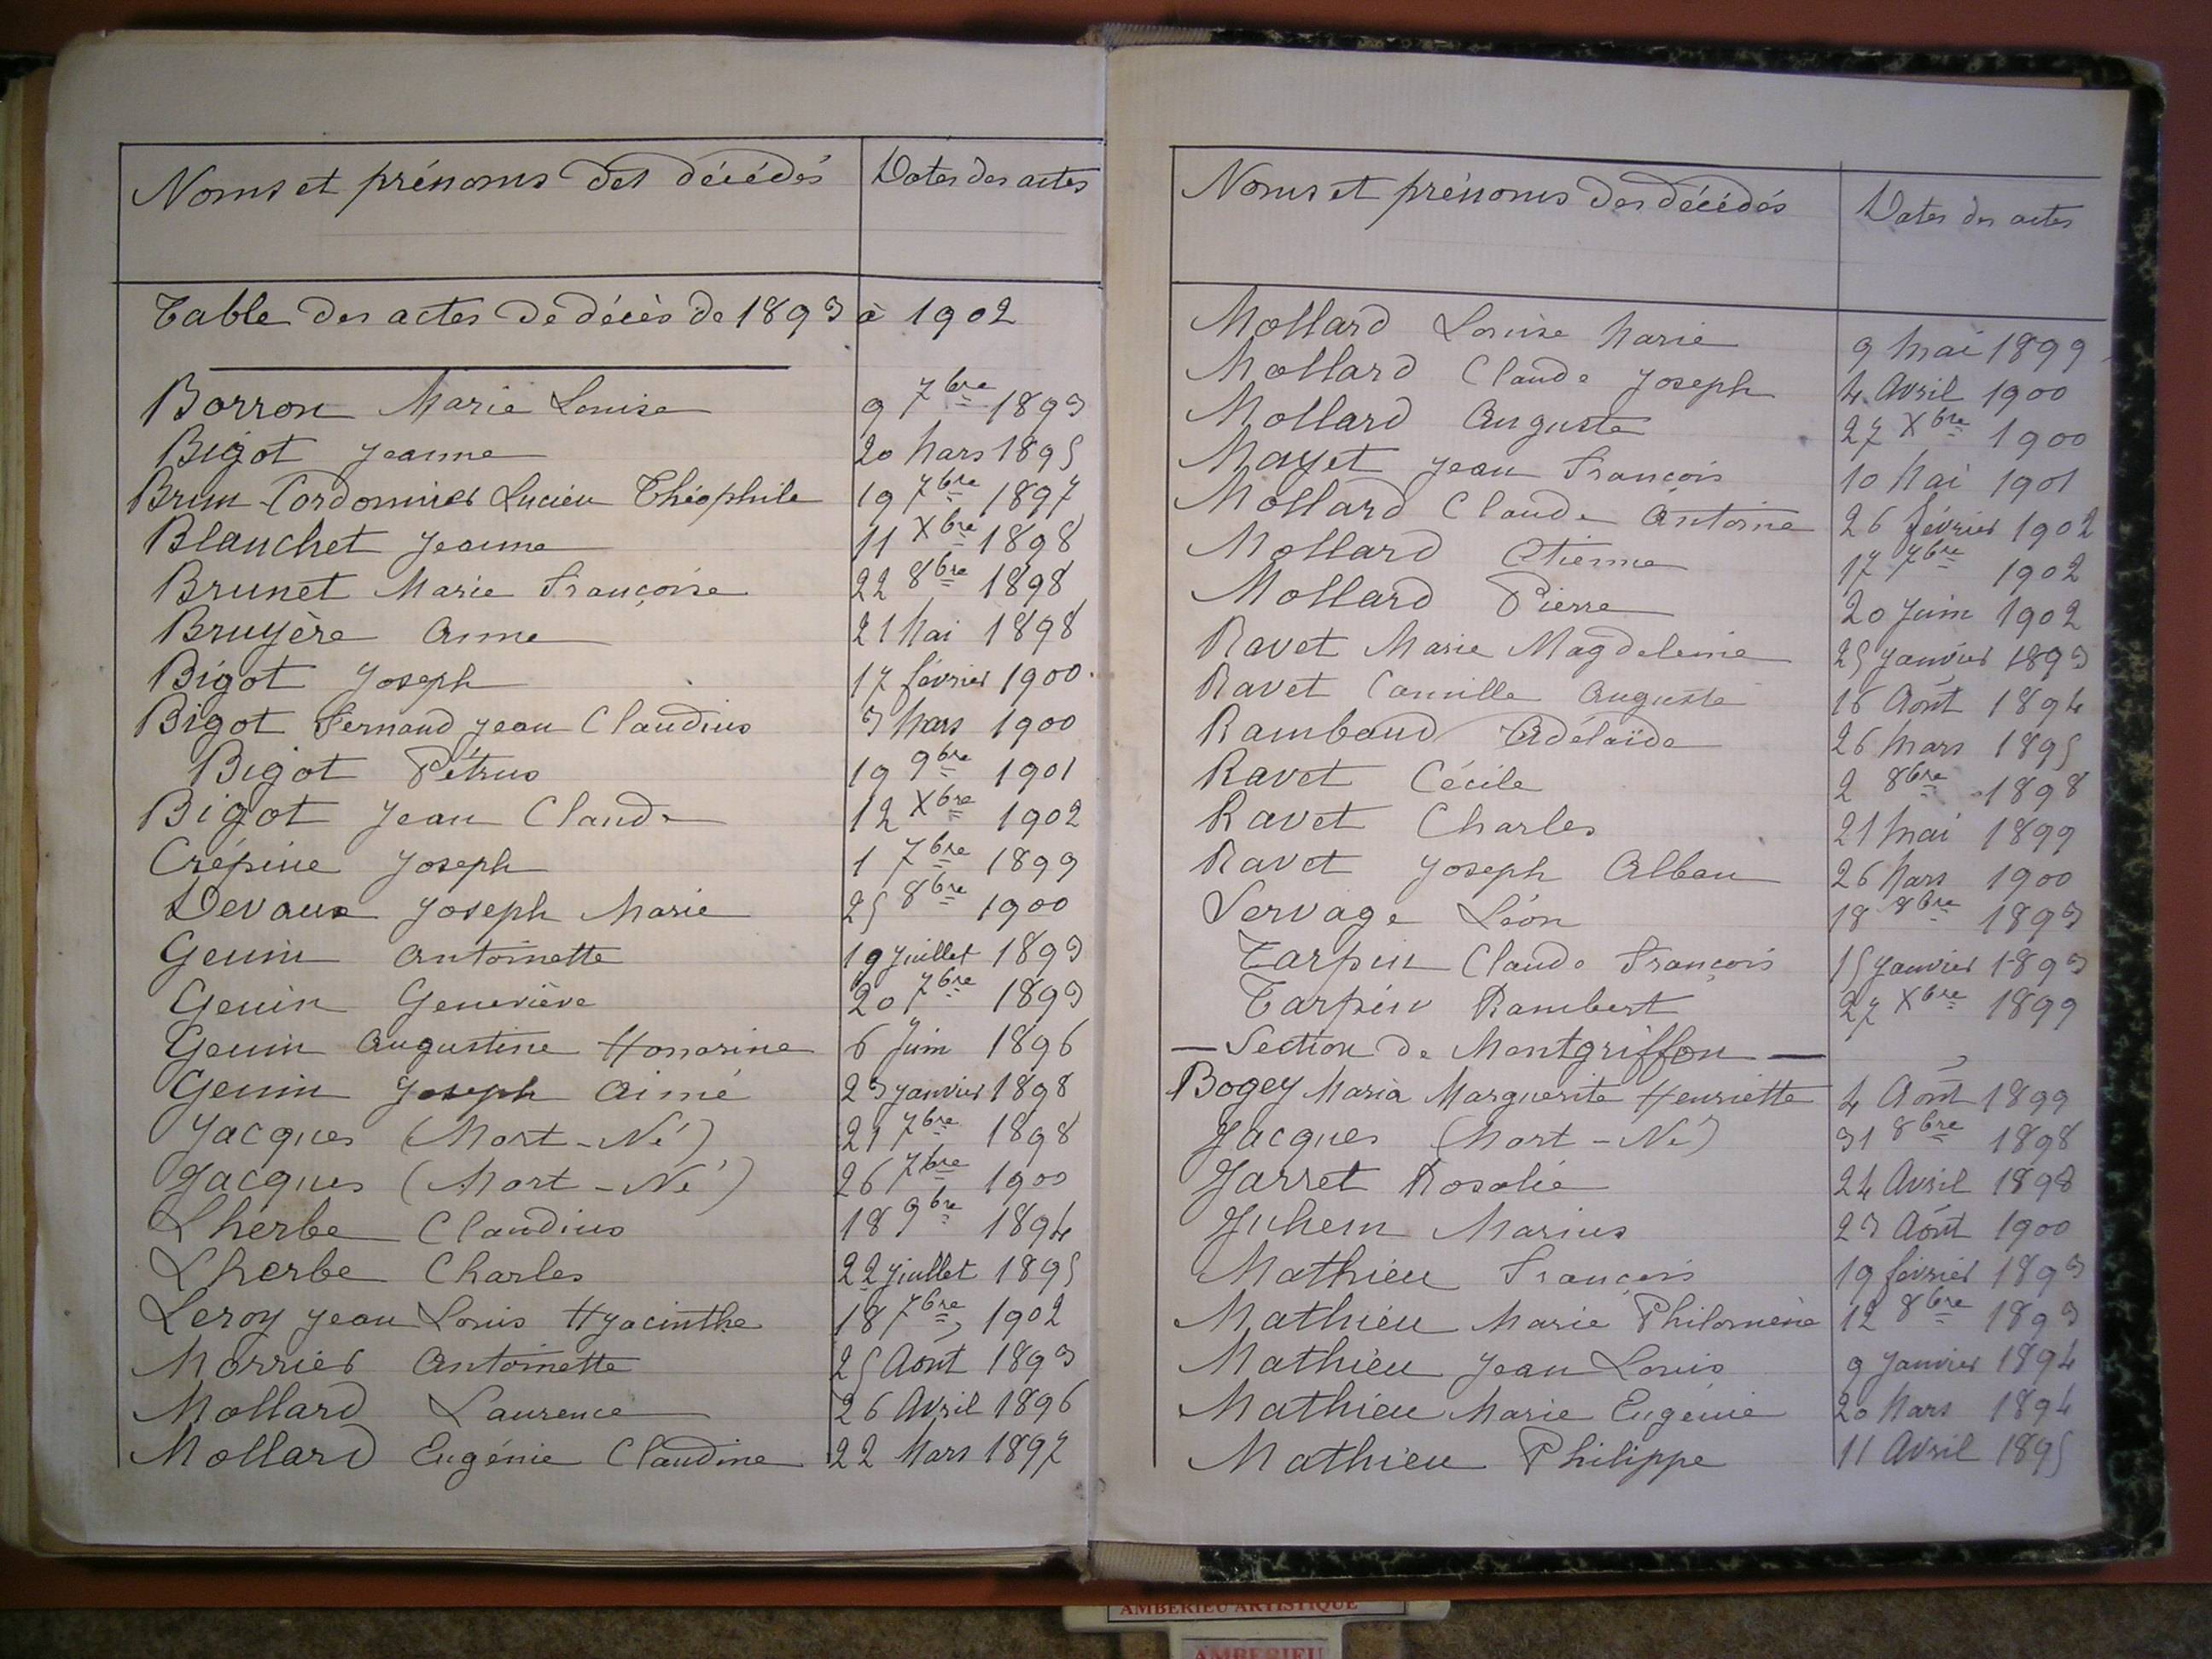 Noms et prénoms des décédés Dates des actes
Table des actes de décès de 1893 à 1902
Borron Marie Louise 9 7bre 1893
Bigot Jeanne 20 Mars 1895
Brun-Cordonnier Lucien Théophile 19 7bre 1897
Blanchet Jeanne 11 Xbre 1898
Brunet Marie Françoise 22 8bre 1898
Bruyère Anne 21 Mai 1898
Bigot Joseph 17 février 1900
Bigot Fernand Jean Claudius 3 Mars 1900
Bigot Pétrus 19 9bre 1901
Bigot Jean Claude 12 Xbre 1902
Crépine Joseph 1 7bre 1899
Devaux Joseph Marie 25 8bre 1900
Genin Antoinette 19 Juillet 1893
Genin Geneviève 20 7bre 1893
Genin Augustine Honorine 6 Juin 1896
Genin Joseph Aimé 23 Janvier 1898
Jacques (Mort-Né) 21 7bre 1898
Jacques (Mort-Né) 26 7bre 1900
Lherbe Claudius 18 9bre 1894
Lherbe Charles 22 Juillet 1895
Leroy Jean Louis Hyacinthe 18 7bre 1902
Morrier Antoinette 25 Août 1893
Mollard Laurence 26 Avril 1896
Mollard Eugénie Claudine 22 Mars 1897
Noms et prénoms des décédés Dates des actes
Mollard Louise Marie 9 Mai 1899
Mollard Claude Joseph 4 Avril 1900
Mollard Auguste 27 Xbre 1900
Mayet Jean François 10 Mai 1901
Mollard Claude Antoine 26 février 1902
Mollard Etienne 17 7bre 1902
Mollard Pierre 20 Juin 1902
Ravet Marie Magdeleine 25 Janvier 1893
Ravet Camille Auguste 16 Août 1894
Rambaud Adélaïde 26 Mars 1895
Ravet Cécile 2 8bre 1898
Ravet Charles 21 Mai 1899
Ravet Joseph Alban 26 Mars 1900
Servage Léon 18 8bre 1893
Tarpin Claude François 15 Janvier 1893
Tarpin Rambert 27 Xbre 1899
— Section de Montgriffon —
Bogey Maria Marguerite Henriette 4 Août 1899
Jacques (Mort-Né) 31 8bre 1898
Jarret Rosalie 24 Avril 1898
Juhem Marius 23 Août 1900
Mathieu François 19 février 1893
Mathieu Marie Philomène 12 8bre 1893
Mathieu Jean Louis 9 Janvier 1894
Mathieu Marie Eugénie 20 Mars 1894
Mathieu Philippe 11 Avril 1895
AMBERIEU ARTISTIQUE
AMBERIEU